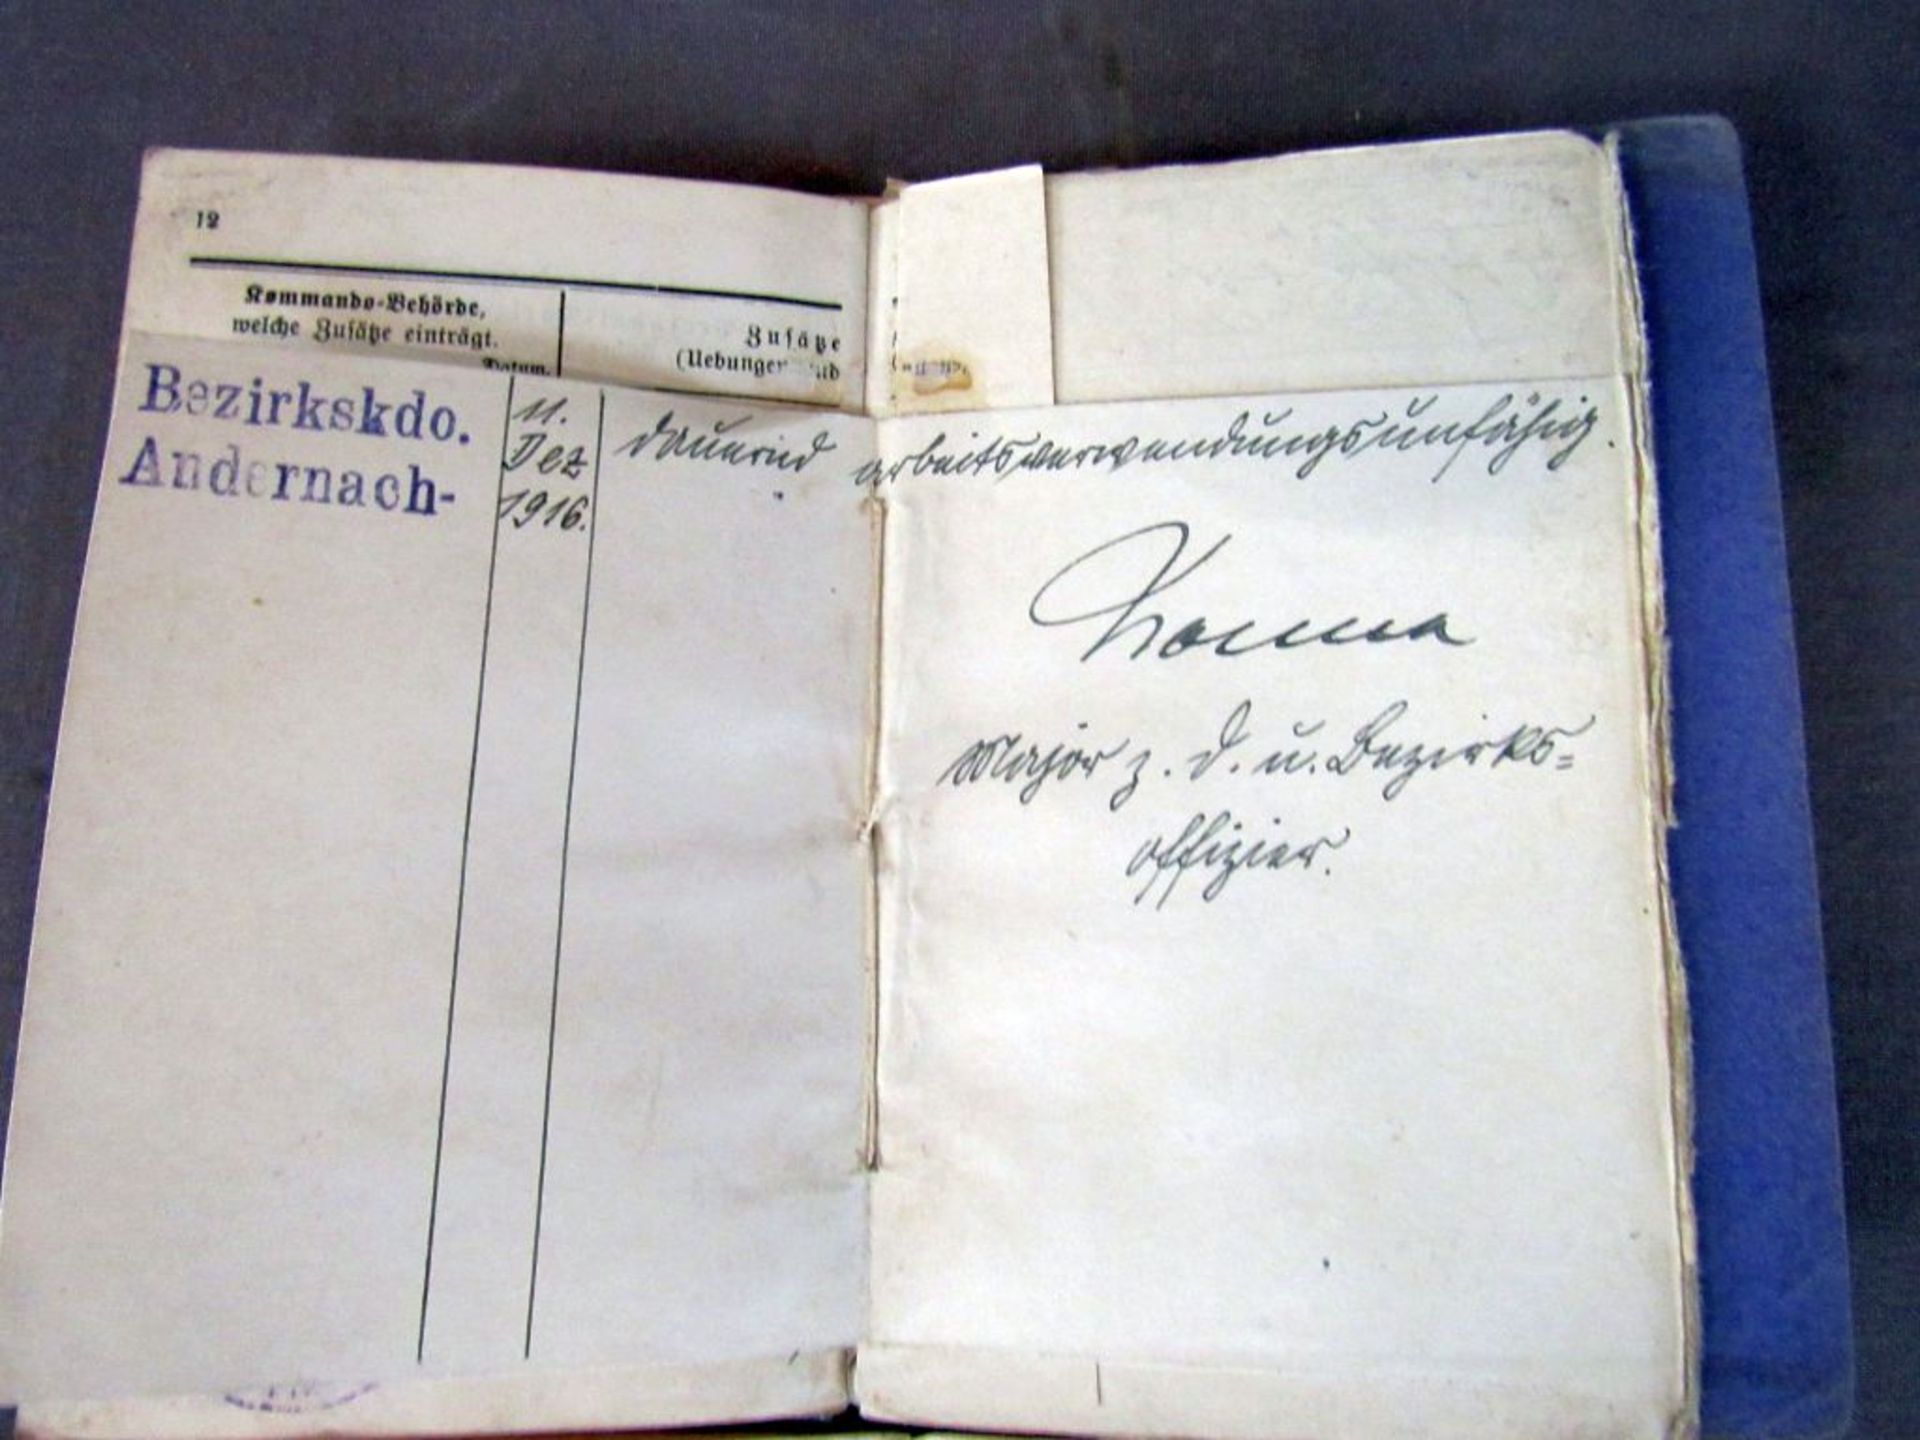 12
Kommando-Behörde,
welche Zusätze einträgt.
Datum.
Zusätze
(Uebungen und
Bezirkskdo.
Andernach-
11.
Dez
1916.
dauernd arbeitsverwendungsunfähig.
Major z. D. u. Bezirks=
offizier.